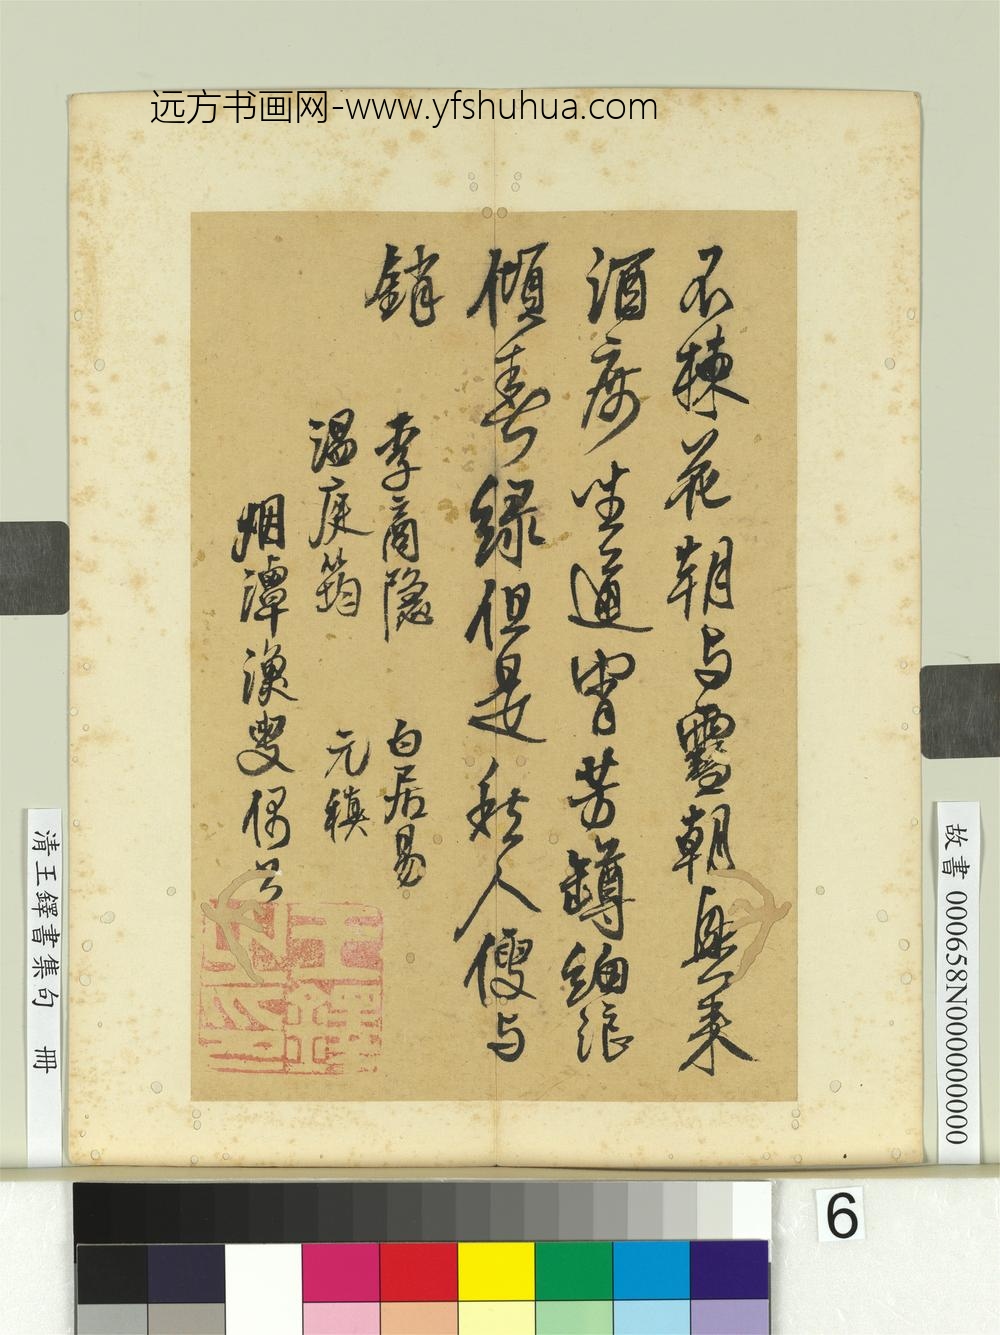 远方书画网-www.yfshuhua.com
不揀花朝与雪朝與來
酒庤坐通宵芳罇細浪
傾春綠但是愁人便与
銷
李商隱 白居易
温庭筠 元稹
烟潭漁叟偶書
王鐸之印
清王鐸書集句 冊
故書 000658N000000000
6